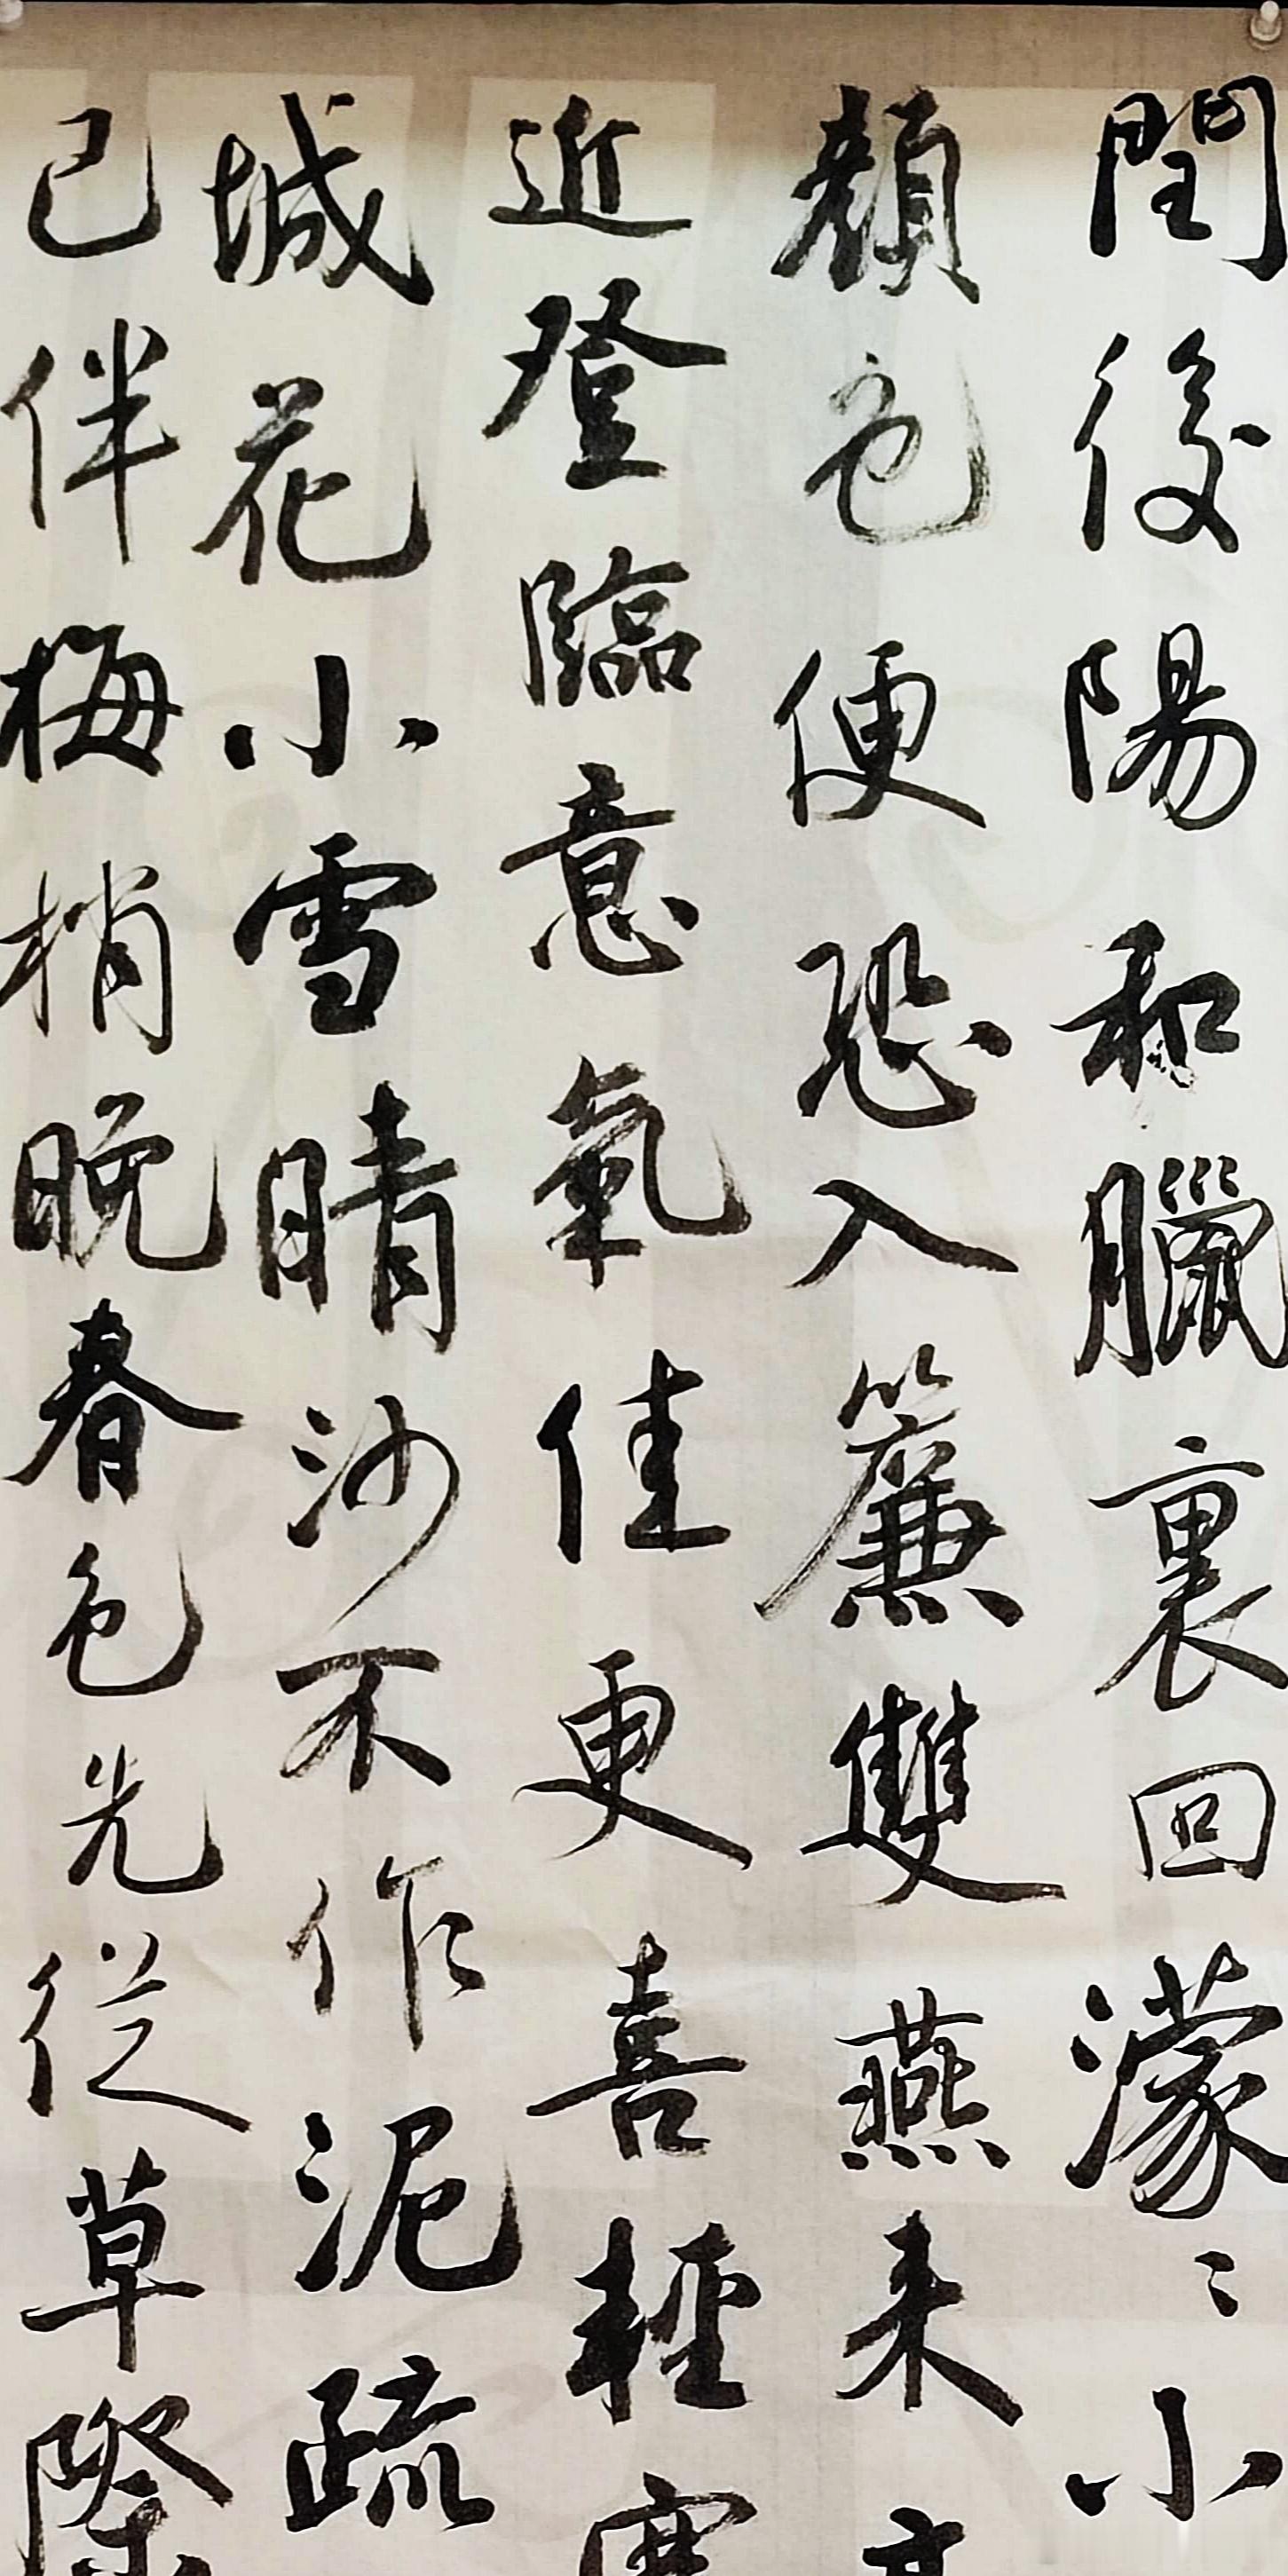 閏後陽和臘裏回濛〻小
顏色便恐入簾雙燕来
近登臨意氣佳更喜輕寒
城花小雪晴沙不作泥疏
已伴梅梢晚春色先從草際